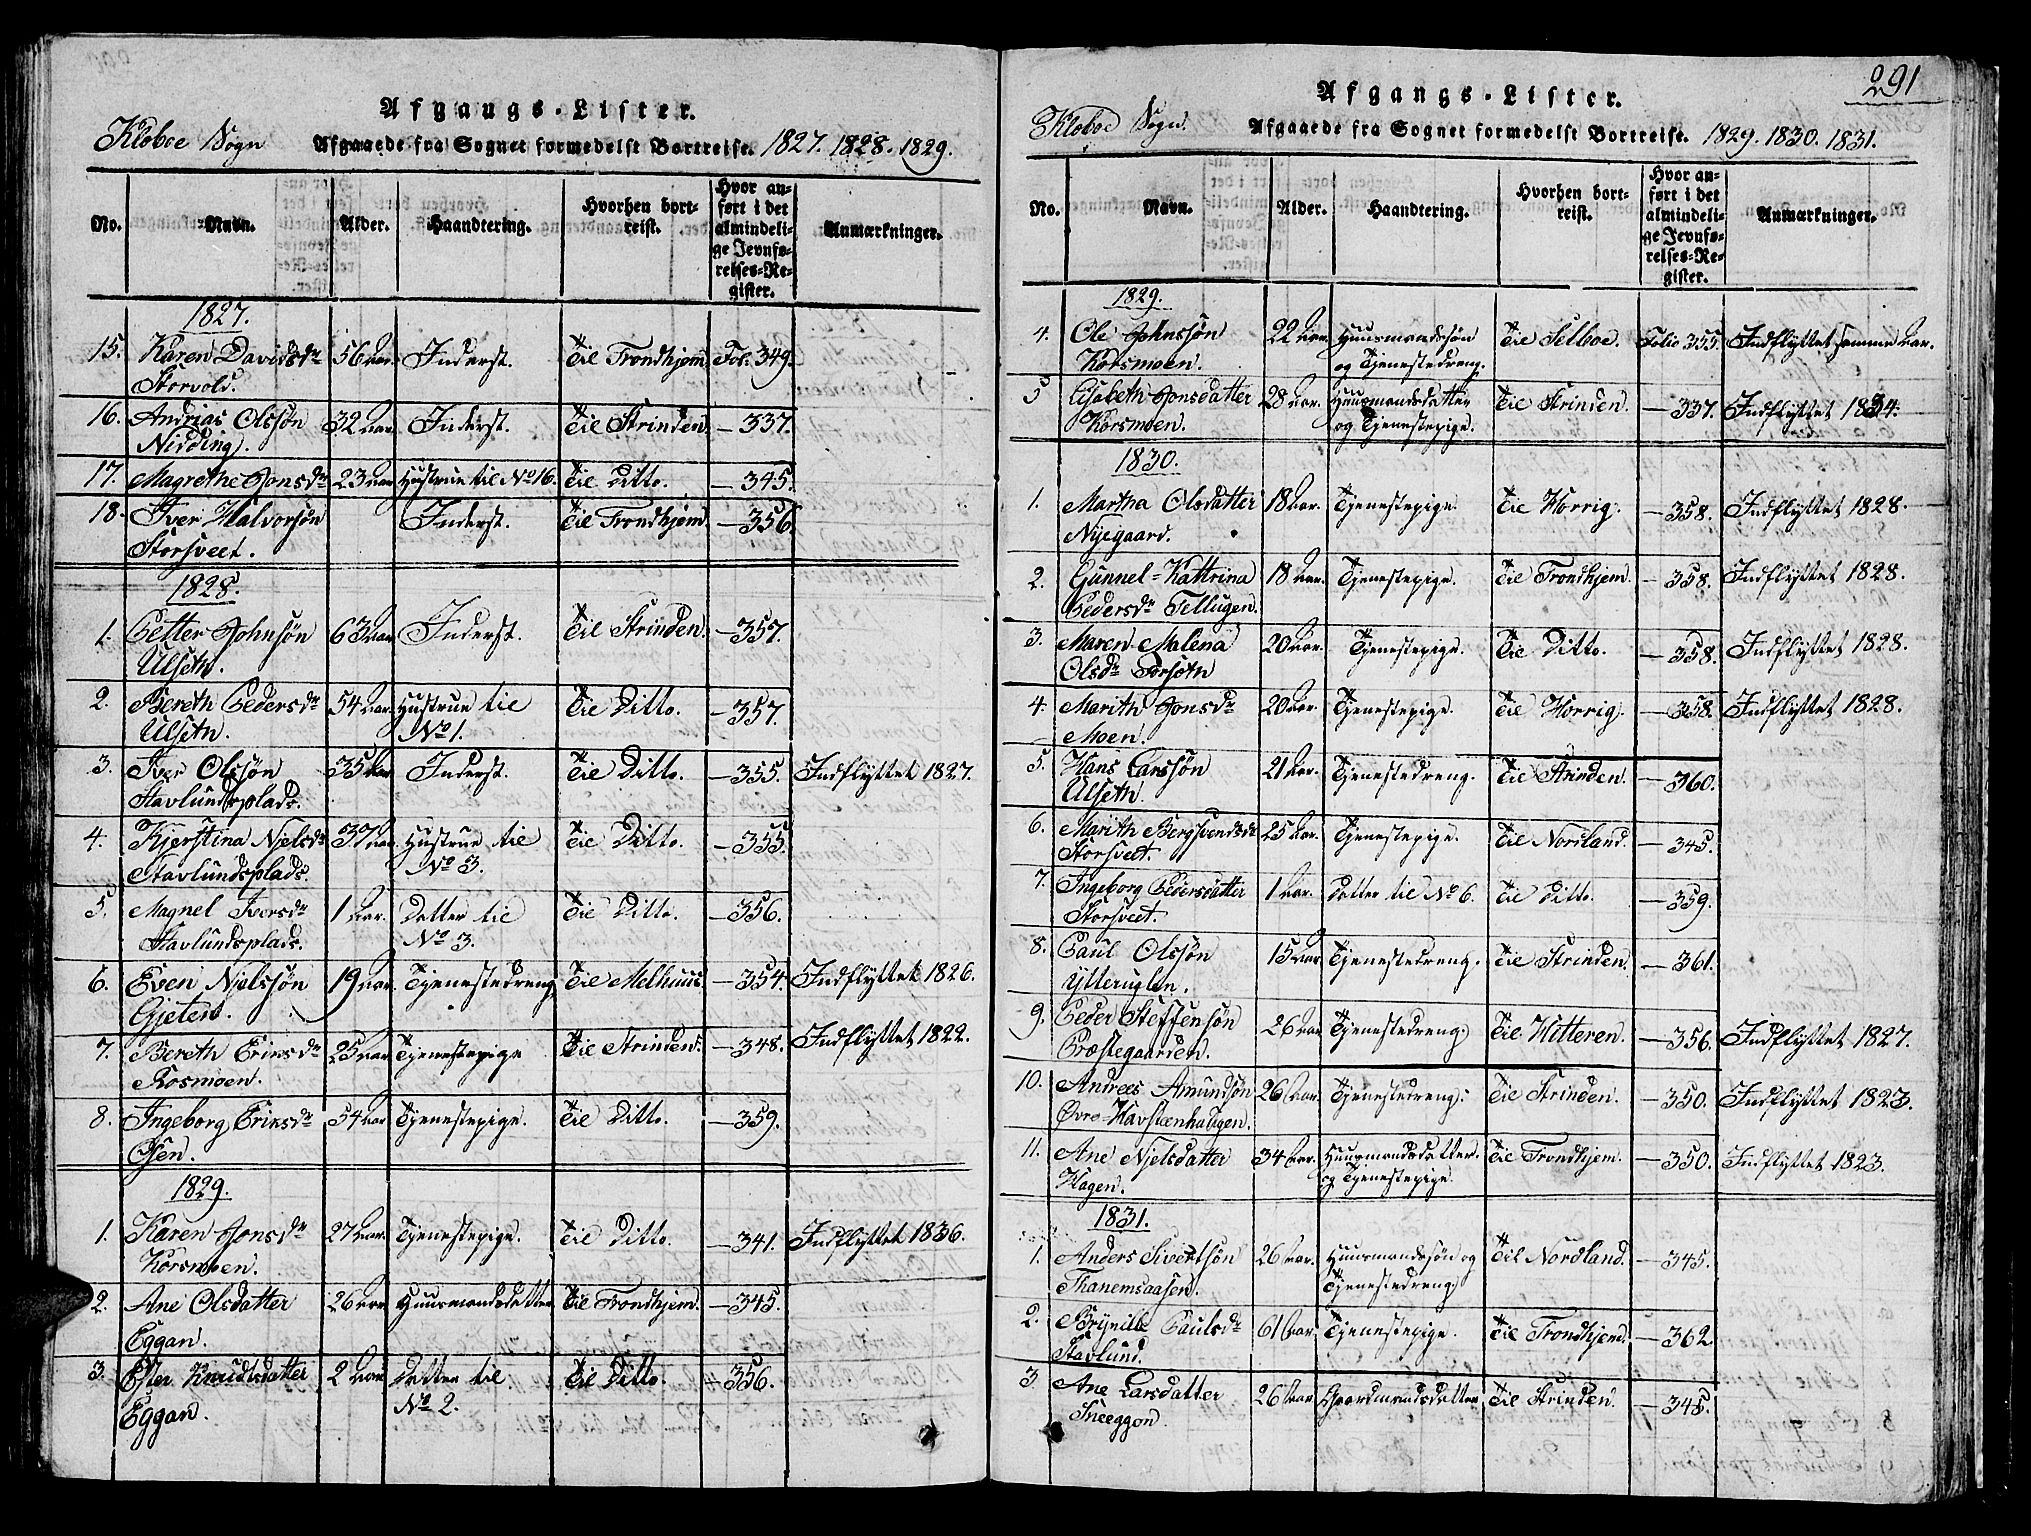 Afgangs-Lister.
Klæboe Sogn Afgaaede fra Sognet formedelst Bortreise. 1827. 1828. 1829.
No. Navn. Alder. Haandtering. Hvorhen bortreist. Hvor anført i det almindelige Jevnførelses-Register. Anmærkninger.
1827.
15. Karen Davidsdr 56 Aar. Inderst. Til Trondhjem. Fol. 349.
Storvold.
16. Andrias Olssøn 32 Aar. Inderst. Til Strinden. — 337.
Nirding.
17. Magrethe Jonsdr 23 Aar Hustrue til No 16. Til Ditto. — 345.
18. Iver Halvorsøn Inderst. Til Trondhjem — 356.
Storsveet.
1828.
1. Petter Johnsøn 63 Aar Inderst. Til Strinden. — 357.
Ulseth.
2. Bereth Pedersdr 54 Aar. Hustrue til Til Ditto. — 357.
Ulseth. No 1.
3. Iver Olssøn 35 Aar Inderst. Til Ditto. — 355. Indflyttet 1827.
Stavlundsplads.
4. Kjerstina Njelsdr 37 Aar. Hustrue til Til Ditto. — 355.
Stavlundsplads. No 3.
5. Magnel Iversdr 1 Aar. Datter til Til Ditto. — 356.
Stavlundsplads. No 3.
6. Even Njelssøn 19 Aar. Tjenestedreng Til Melhuus. — 354. Indflyttet 1826.
Gjeten.
7. Bereth Eriksdr 25 Aar Tjenestepige Til Strinden. — 348. Indflyttet 1822.
Rosmoen.
8. Ingeborg Eriksdr 54 Aar Tjenestepige. Til Ditto. — 359.
Osen.
1829.
1. Karen Jonsdr 27 Aar. Tjenestepige. Til Ditto. — 341. Indflyttet 1836.
Korsmoen.
2. Ane Olsdatter 26 Aar. Huusmandsdatter Til Trondhjem. — 345.
Eggan.
3. Ester Knudsdatter 2 Aar Datter til Til Ditto. — 356.
Eggan. No 2.
291
Afgangs-Lister.
Klæboe Sogn. Afgaaede fra Sognet formedelst Bortreise. 1829. 1830. 1831.
No. Navn. Alder. Haandtering. Hvorhen bortreist. Hvor anført i det almindelige Jevnførelses-Register. Anmærkninger.
1829.
4. Ole Johnssøn 22 Aar. Huusmandssøn Til Selboe. Folio 355. Indflyttet samme Aar.
Korsmoen. og Tjenestedreng.
5 Elisabeth Jonsdatter 28 Aar. Huusmandsdatter Til Strinden. — 337. Indflyttet 1834.
Korsmoen. og Tjenestepige.
1830.
1. Martha Olsdatter 18 Aar. Tjenestepige. Til Horrig. — 358. Indflyttet 1828.
Nyegaard.
2. Gunnel-Kattrina 18 Aar. Tjenestepige. Til Trondhjem. — 358. Indflyttet 1828.
Pedersdr Tellugen.
3. Maren Malena 20 Aar. Tjenestepige. Til Ditto. — 358. Indflyttet 1828.
Olsdr Forseth
4. Marith Jonsdr 20 Aar. Tjenestepige. Til Horrig. — 358. Indflyttet 1828.
Moen.
5. Hans Larssøn 21 Aar. Tjenestedreng. Til Strinden. — 360.
Ulseth.
6. Marith Bergsvendsdr 25 Aar. Tjenestepige. Til Nordland. — 345.
Storsveet.
7. Ingeborg Pedersdatter 1 Aar. Datter til No 6. Til Ditto. — 359.
Storsveet.
8. Paul Olssøn 15 Aar Tjenestedreng. Til Strinden. — 361.
Ytteruglen.
9. Peder Steffensøn 26 Aar Tjenestedreng. Til Hitteren. — 356. Indflyttet 1827.
Præstegaarden.
10. Andrees Amundsøn 26 Aar. Tjenestedreng. Til Strinden. — 350. Indflyttet 1823.
Øvre-Havsteenhaugen.
11. Ane Njelsdatter 34 Aar. Huusmandsdatter. Til Trondhjem. — 350. Indflyttet 1823.
Hagen. og Tjenestepige.
1831.
1. Anders Sivertsøn 26 Aar Huusmandssøn og Til Nordland. — 345.
Thanemsaasen. Tjenestedreng.
2. Brynille Paulsdr 61 Aar Tjenestepige. Til Trondhjem. — 362
Stavlund.
3 Ane Larsdatter 26 Aar Gaardmandsdatter Til Strinden. — 345.
Sneeggon.